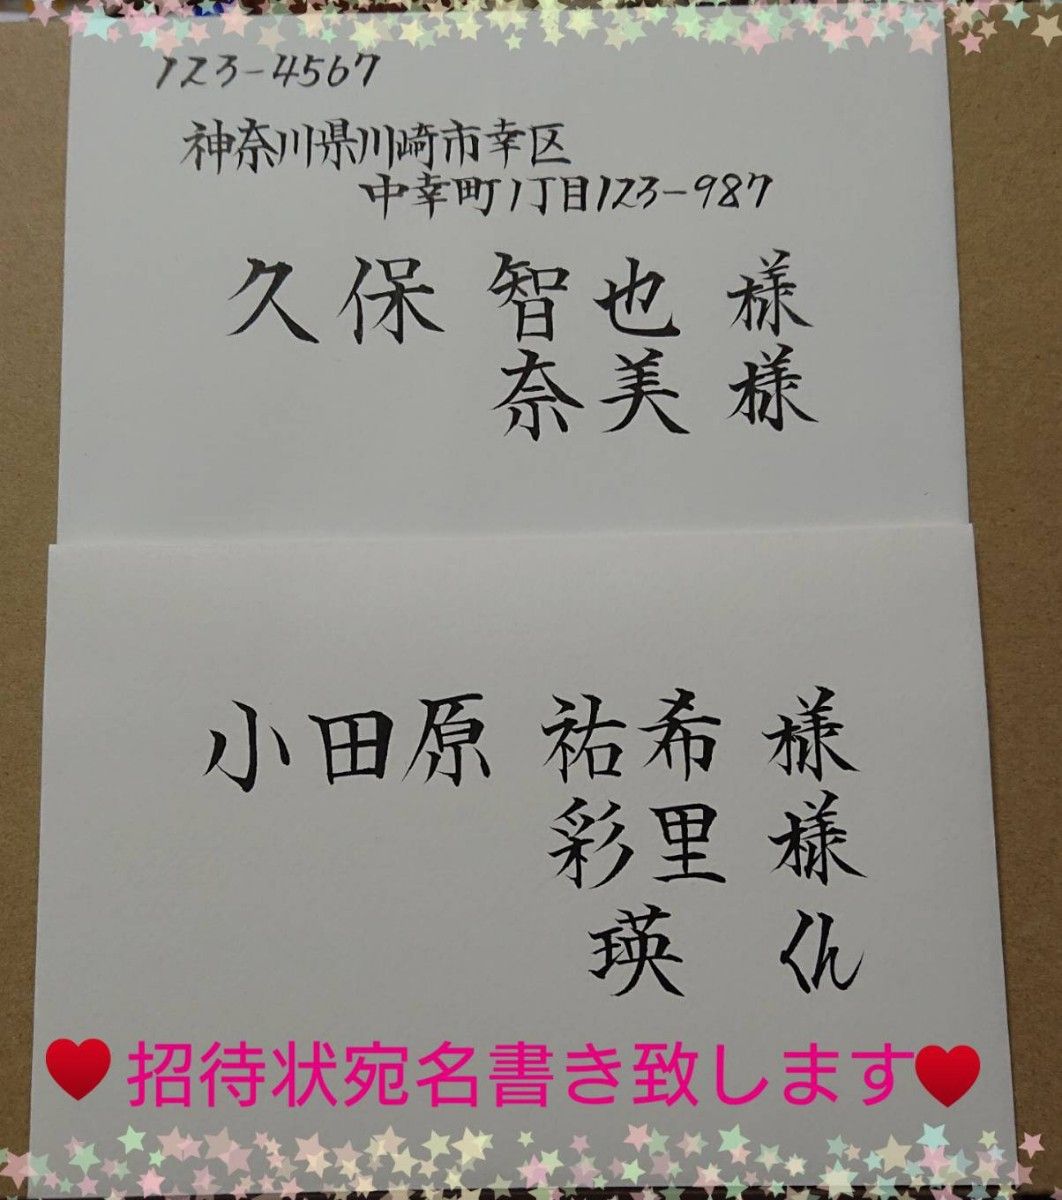 123-4567
神奈川県川崎市幸区
中幸町1丁目123-987
久保 智也 様
奈美 様
小田原 祐希 様
彩里 様
瑛 くん
招待状宛名書き致します